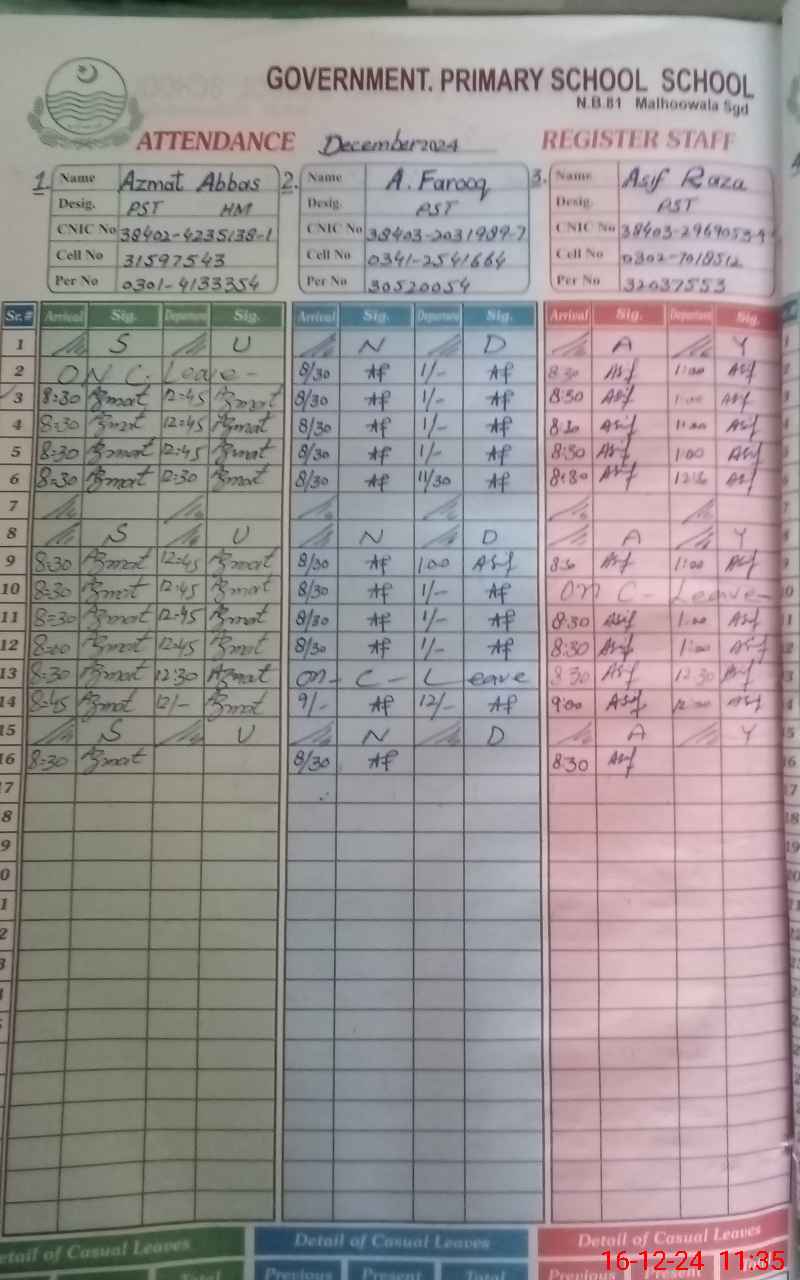 GOVERNMENT. PRIMARY SCHOOL SCHOOL
N.B.81 Malhoowala Sgd
ATTENDANCE December 2024 REGISTER STAFF
1. Name Azmat Abbas 2. Name A. Farooq 3. Name Asif Raza
Desig. PST HM Desig. PST Desig. PST
CNIC No 38402-4235138-1 CNIC No 38403-2031989-7 CNIC No 38403-2969053-
Cell No 31597543 Cell No 0341-2541664 Cell No 0302-7018512
Per No 0301-4133354 Per No 30520054 Per No 32037553
Sr.# Arrival Sig. Departure Sig. Arrival Sig. Departure Sig. Arrival Sig. Departure Sig.
1 S U N D A Y
2 ON C. Leave - 8/30 Af 1/- Af 8:30 Asif 1:00 Asif
3 8:30 Azmat 12:45 Azmat 8/30 Af 1/- Af 8:30 Asif 1:00 Asif
4 8:30 Azmat 12:45 Azmat 8/30 Af 1/- Af 8:30 Asif 1:00 Asif
5 8:30 Azmat 12:45 Azmat 8/30 Af 1/- Af 8:30 Asif 1:00 Asif
6 8:30 Azmat 12:30 Azmat 8/30 Af 11/30 Af 8:30 Asif Asif
7
8 S U N D A Y
9 8:30 Azmat 12:45 Azmat 8/30 Af 1:00 Asif 8:30 Asif 1:00 Asif
10 8:30 Azmat 12:45 Azmat 8/30 Af 1/- Af on C - Leave -
11 8:30 Azmat 12:45 Azmat 8/30 Af 1/- Af 8:30 Asif 1:00 Asif
12 Azmat 12:45 Azmat 8/30 Af 1/- Af 8:30 Asif 1:00 Asif
13 8:30 Azmat 12:30 Azmat on - C - Leave 8:30 Asif 12:30 Asif
14 8:45 Azmat 12/- Azmat 9/- Af 12/- Af 9:00 Asif 12:00 Asif
15 S U N D A Y
16 8:30 Azmat 8/30 Af 8:30 Asif
17
8
9
0
1
2
3
Detail of Casual Leaves Detail of Casual Leaves Detail of Casual Leaves
Total Previous Present Total Previous Present
16-12-24 11:35